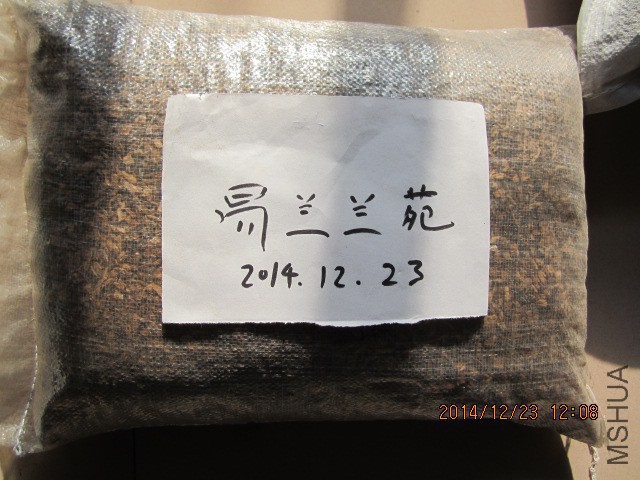 易兰兰苑
2014.12.23
2014/12/23 12:08
MSHUA